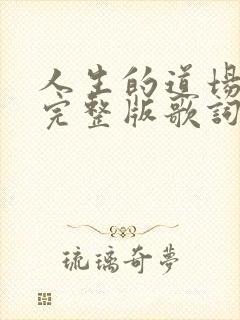 人生的道場
完整版歌詞
琉璃奇夢